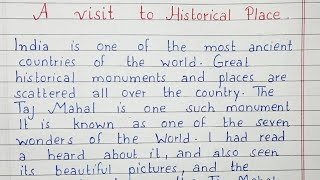 A visit to Historical Place.
India is one of the most ancient
countries of the world. Great
historical monuments and places are
scattered all over the country. The
Taj Mahal is one such monument
It is known as one of the seven
wonders of the World. I had read
a heard about it, and also seen
its beautiful pictures, and the
the Taj Mahal